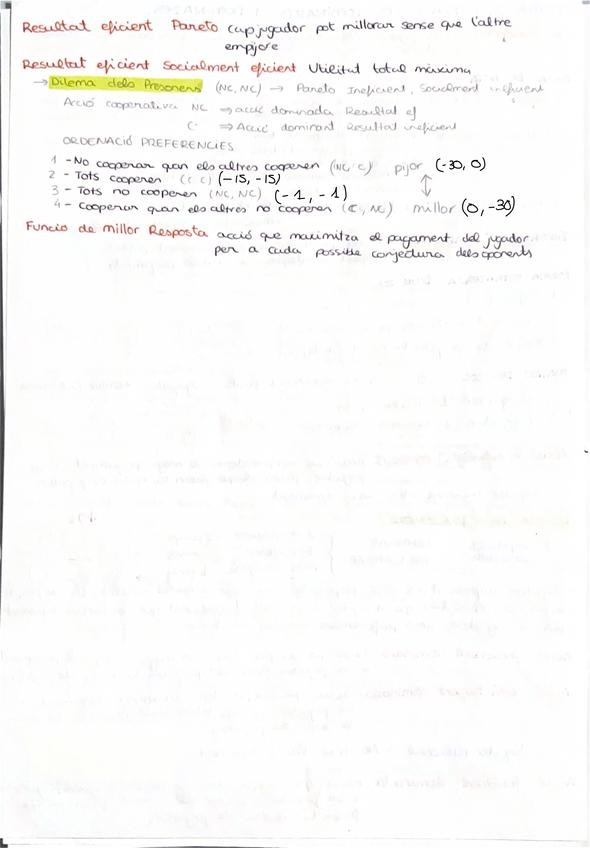 Resultat eficient Pareto cap jugador pot millorar sense que l'altre
empjore
Resultat eficient Socialment eficient Utilitat total màxima
→ Dilema dels Presoners (NC, NC) → Pareto Ineficient, Socialment ineficient
Acció cooperativa NC ⇒ acció dominada Resultat ef
C ⇒ Acció dominant Resultat ineficient
ORDENACIÓ PREFERENCIES
1 - No cooperar qan els altres cooperen (NC, C) pijor (-30, 0)
2 - Tots cooperen (C C) (-15, -15)
3 - Tots no cooperen (NC, NC) (-1, -1)
4 - Cooperar quan els altres no cooperen (C, NC) millor (0, -30)
Funcio de millor Resposta acció que maximitza el pagament del jugador
per a cada possible conjectura dels oponents